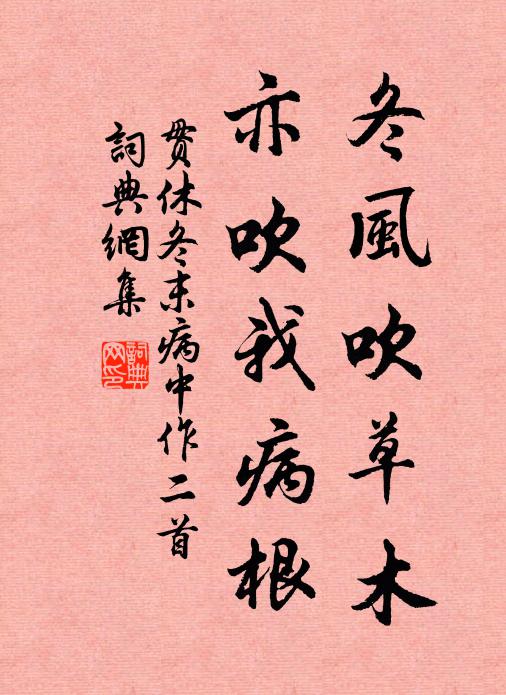 冬風吹草木
亦吹我病根
貫休冬末病中作二首
詞典網集
詞典網印